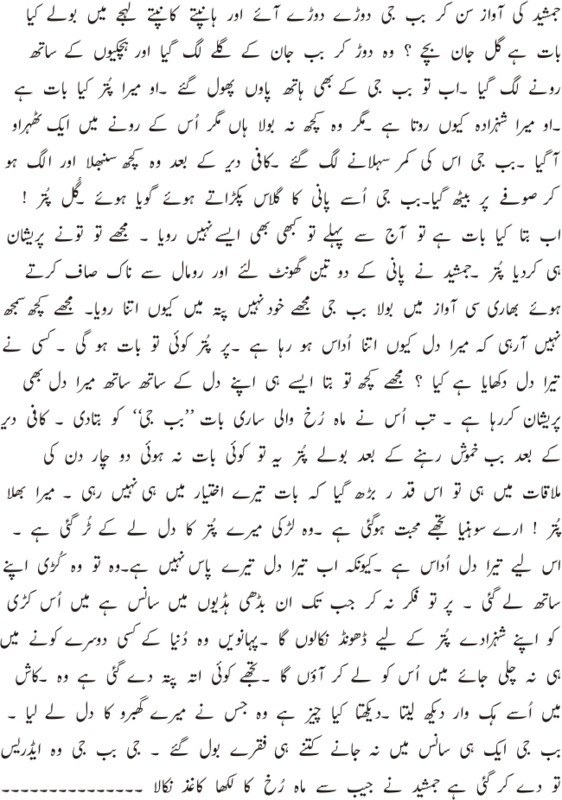 جمشید کی آواز سن کر بب جی دوڑے دوڑے آئے اور ہانپتے کانپتے لہجے میں بولے کیا
بات ہے گل جان بچے ؟ وہ دوڑ کر بب جان کے گلے لگ گیا اور ہچکیوں کے ساتھ
رونے لگ گیا ۔اب تو بب جی کے بھی ہاتھ پاوں پھول گئے ۔او میرا پُتر کیا بات ہے
۔او میرا شہزادہ کیوں روتا ہے ۔مگر وہ کچھ نہ بولا ہاں مگر اُس کے رونے میں ایک ٹھہراو
آگیا ۔بب جی اس کی کمر سہلانے لگ گئے ۔کافی دیر کے بعد وہ کچھ سنبھلا اور الگ ہو
کر صوفے پر بیٹھ گیا۔بب جی اُسے پانی کا گلاس پکڑاتے ہوئے گویا ہوئے ۔گُل پُتر !
اب بتا کیا بات ہے تو آج سے پہلے تو کبھی بھی ایسے نہیں رویا ۔ مجھے تو تونے پریشان
ہی کردیا پُتر ۔جمشید نے پانی کے دو تین گھونٹ لئے اور رومال سے ناک صاف کرتے
ہوئے بھاری سی آواز میں بولا بب جی مجھے خود نہیں پتہ میں کیوں اتنا رویا۔ مجھے کچھ سمجھ
نہیں آرہی کہ میرا دل کیوں اتنا اُداس ہو رہا ہے ۔پر پُتر کوئی تو بات ہو گی ۔کسی نے
تیرا دل دکھایا ہے کیا ؟ مجھے کچھ تو بتا ایسے ہی اپنے دل کے ساتھ ساتھ میرا دل بھی
پریشان کررہا ہے ۔ تب اُس نے ماہ رُخ والی ساری بات ’’بب جی‘‘ کو بتادی ۔ کافی دیر
کے بعد بب خموش رہنے کے بعد بولے پُتر یہ تو کوئی بات نہ ہوئی دو چار دن کی
ملاقات میں ہی تو اس قد ر بڑھ گیا کہ بات تیرے اختیار میں ہی نہیں رہی ۔ میرا بھلا
پُتر ! ارے سوہنیا تجھے محبت ہوگئی ہے ۔وہ لڑکی میرے پُتر کا دل لے کے ٹُر گئی ہے ۔
اس لیے تیرا دل اُداس ہے ۔کیونکہ اب تیرا دل تیرے پاس نہیں ہے۔وہ تو وہ کُڑی اپنے
ساتھ لے گئی ۔ پر تو فکر نہ کر جب تک ان بڈھی ہڈیوں میں سانس ہے میں اُس کڑی
کو اپنے شہزادے پُتر کے لیے ڈھونڈ نکالوں گا ۔پہانویں وہ دُنیا کے کسی دوسرے کونے میں
ہی نہ چلی جائے میں اُس کو لے کر آؤں گا ۔تجھے کوئی اتہ پتہ دے گئی ہے وہ ۔کاش
میں اُسے ہک وار دیکھ لیتا ۔دیکھتا کیا چیز ہے وہ جس نے میرے گھبرو کا دل لے لیا ۔
بب جی ایک ہی سانس میں نہ جانے کتنے ہی فقرے بول گئے ۔ جی بب جی وہ ایڈریس
تو دے کر گئی ہے جمشید نے جیب سے ماہ رُخ کا لکھا کاغذ نکالا ۔۔۔۔۔۔۔۔۔۔۔۔۔۔۔